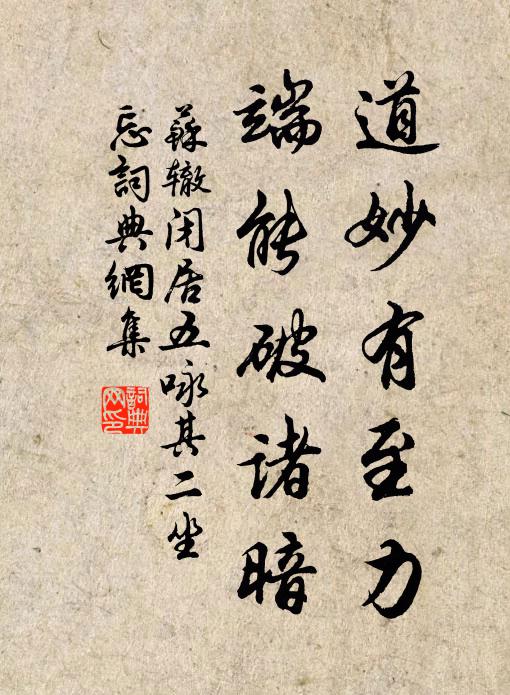 道妙有至力
端能破诸暗
蘇辙闭居五咏其二坐
忘詞典網集
詞典网印